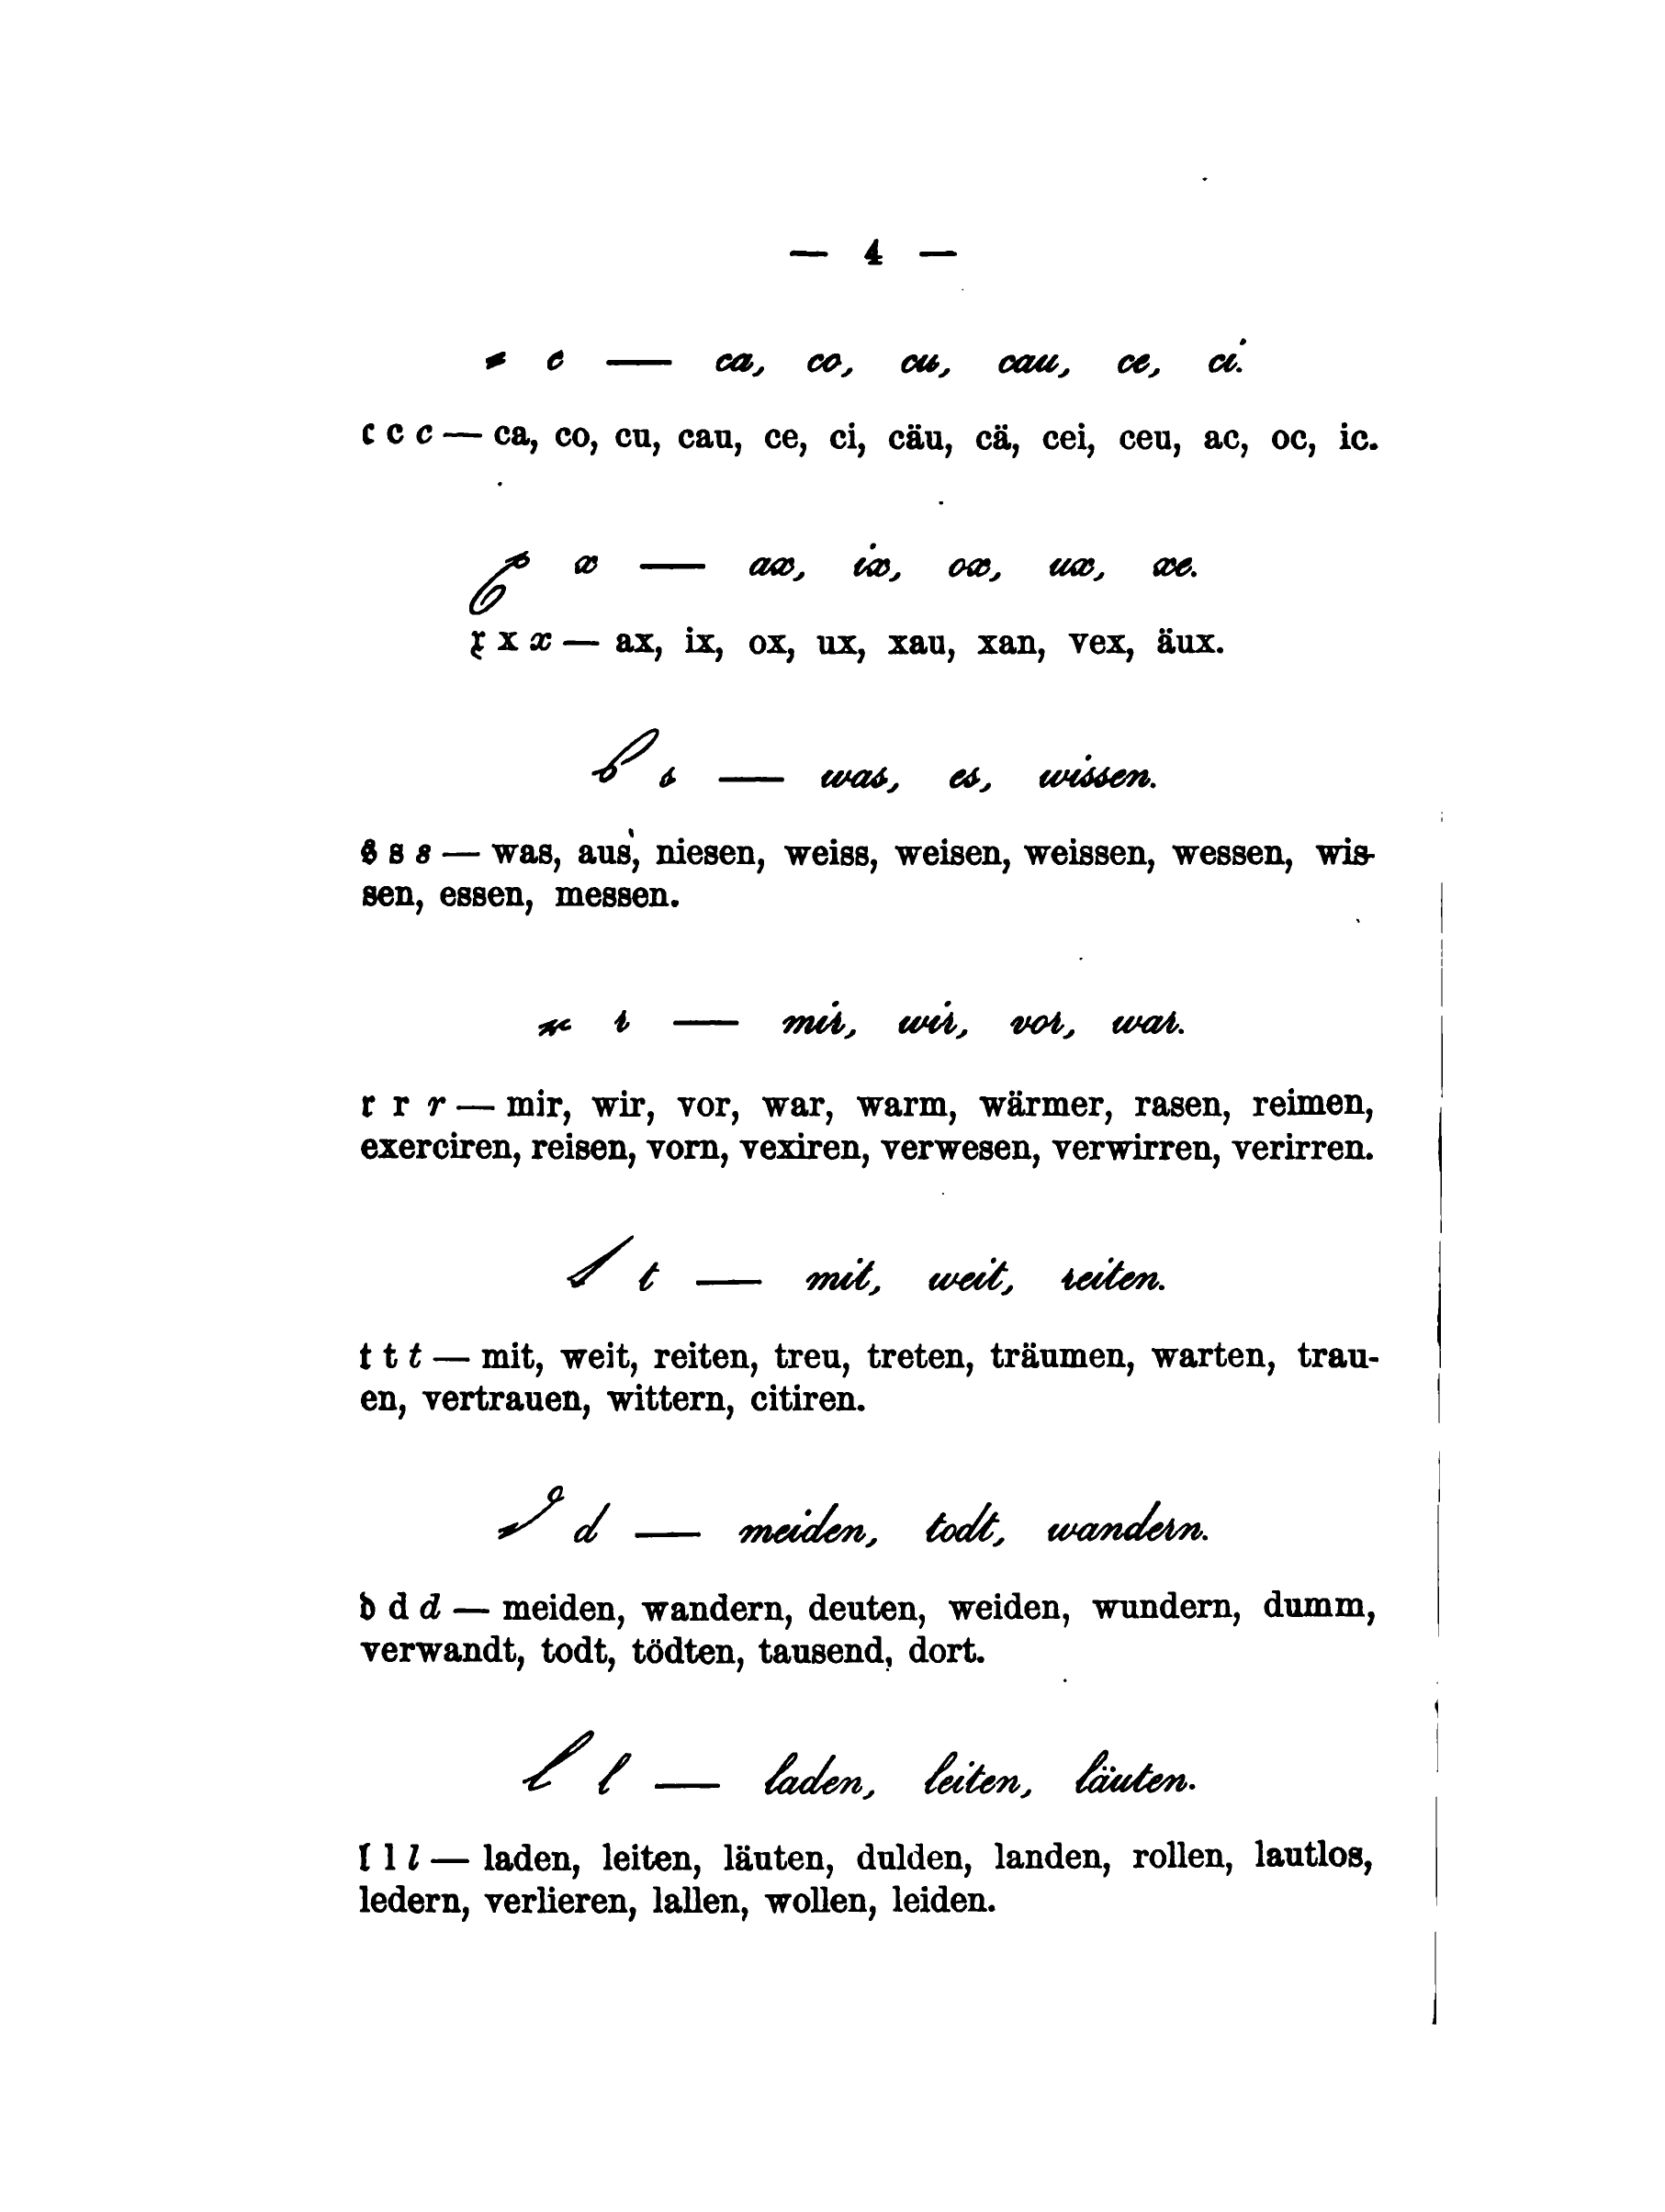 — 4 —
c c — ca, co, cu, cau, ce, ci.
c c c — ca, co, cu, cau, ce, ci, cäu, cä, cei, ceu, ac, oc, ic.
x x — ax, ix, ox, ux, xe.
x x x — ax, ix, ox, ux, xau, xan, vex, äux.
s s — was, es, wissen.
s s s — was, aus, niesen, weiss, weisen, weissen, wessen, wis-
sen, essen, messen.
r r — mir, wir, vor, war.
r r r — mir, wir, vor, war, warm, wärmer, rasen, reimen,
exerciren, reisen, vorn, vexiren, verwesen, verwirren, verirren.
t t — mit, weit, reiten.
t t t — mit, weit, reiten, treu, treten, träumen, warten, trau-
en, vertrauen, wittern, citiren.
d d — meiden, todt, wandern.
d d d — meiden, wandern, deuten, weiden, wundern, dumm,
verwandt, todt, tödten, tausend, dort.
l l — laden, leiten, läuten.
l l l — laden, leiten, läuten, dulden, landen, rollen, lautlos,
ledern, verlieren, lallen, wollen, leiden.